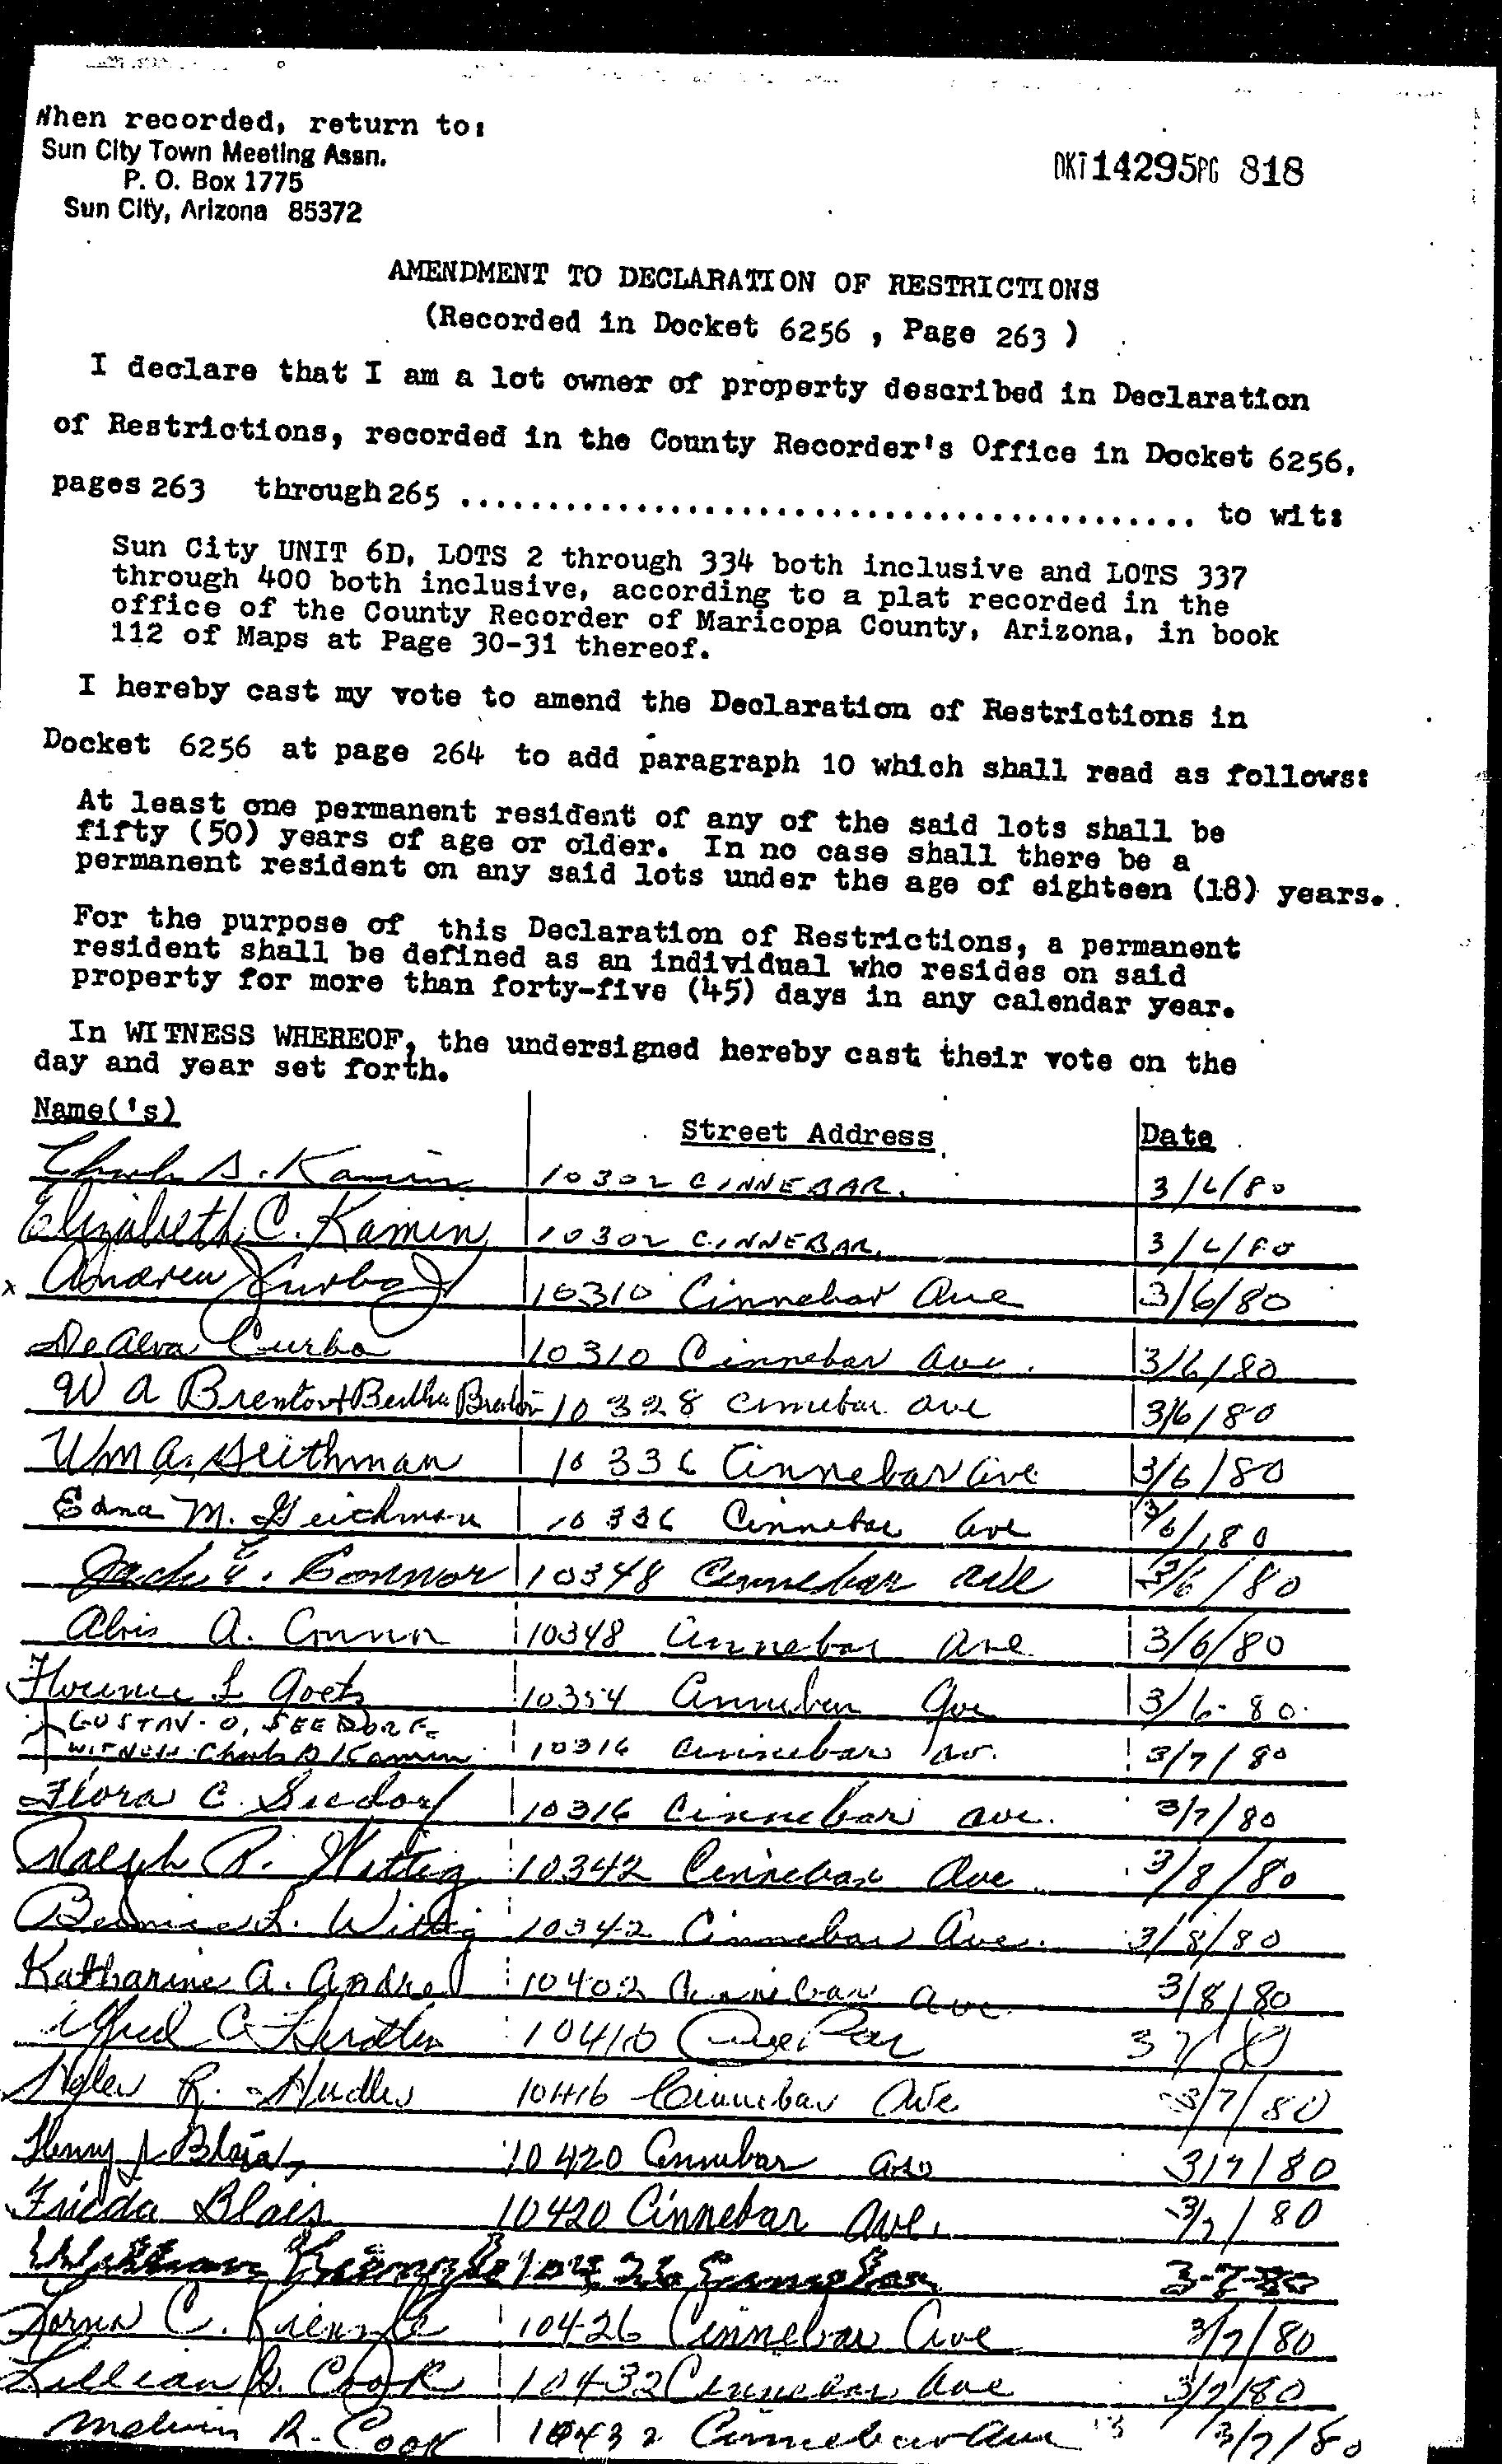 When recorded, return to:
Sun City Town Meeting Assn.
P. O. Box 1775
Sun City, Arizona 85372
DKT 14295 PG 818
AMENDMENT TO DECLARATION OF RESTRICTIONS
(Recorded in Docket 6256 , Page 263 )
I declare that I am a lot owner of property described in Declaration
of Restrictions, recorded in the County Recorder's Office in Docket 6256,
pages 263 through 265 .......................................... to wit:
Sun City UNIT 6D, LOTS 2 through 334 both inclusive and LOTS 337
through 400 both inclusive, according to a plat recorded in the
office of the County Recorder of Maricopa County, Arizona, in book
112 of Maps at Page 30-31 thereof.
I hereby cast my vote to amend the Declaration of Restrictions in
Docket 6256 at page 264 to add paragraph 10 which shall read as follows:
At least one permanent resident of any of the said lots shall be
fifty (50) years of age or older. In no case shall there be a
permanent resident on any said lots under the age of eighteen (18) years.
For the purpose of this Declaration of Restrictions, a permanent
resident shall be defined as an individual who resides on said
property for more than forty-five (45) days in any calendar year.
In WITNESS WHEREOF, the undersigned hereby cast their vote on the
day and year set forth.
Name('s) Street Address Date
S. Kamin 10302 CINNEBAR. 3/6/80
Elizabeth C. Kamin 10302 CINNEBAR 3/6/80
x Andrew Curbo Jr 10310 Cinnebar Ave 3/6/80
DeAlva Curbo 10310 Cinnebar Ave. 3/6/80
W A Brenton + Bertha Brenton 10328 Cinnebar Ave 3/6/80
Wm A. 10336 Cinnebar Ave 3/6/80
Edna M. 10336 Cinnebar Ave 3/6/80
Jack E. Connor 10348 Cinnebar Ave 3/6/80
A. Connor 10348 Cinnebar Ave 3/6/80
Florence L Goetz 10354 Cinnebar Ave 3/6-80
GUSTAV. O, SEEDORF
WITNESS Kamin 10316 Cinnebar Av. 3/7/80
Flora C. Seedorf 10316 Cinnebar Ave. 3/7/80
Ralph R. Wittig 10342 Cinnebar Ave 3/8/80
Bernice L. Wittig 10342 Cinnebar Ave. 3/8/80
Katharine A. Andre 10402 Cinnebar Ave. 3/8/80
C 10410
R. 10416 Cinnebar Ave 3/7/80
Henry J Blais 10420 Cinnebar Ave 3/7/80
Frieda Blais 10420 Cinnebar Ave. 3/7/80
3-7-80
Lorna C. Kienzle 10426 Cinnebar Ave 3/7/80
Lillian Cook 10432 Cinnebar Ave 3/7/80
Melvin R. Cook 10432 Cinnebar Ave 3/7/80